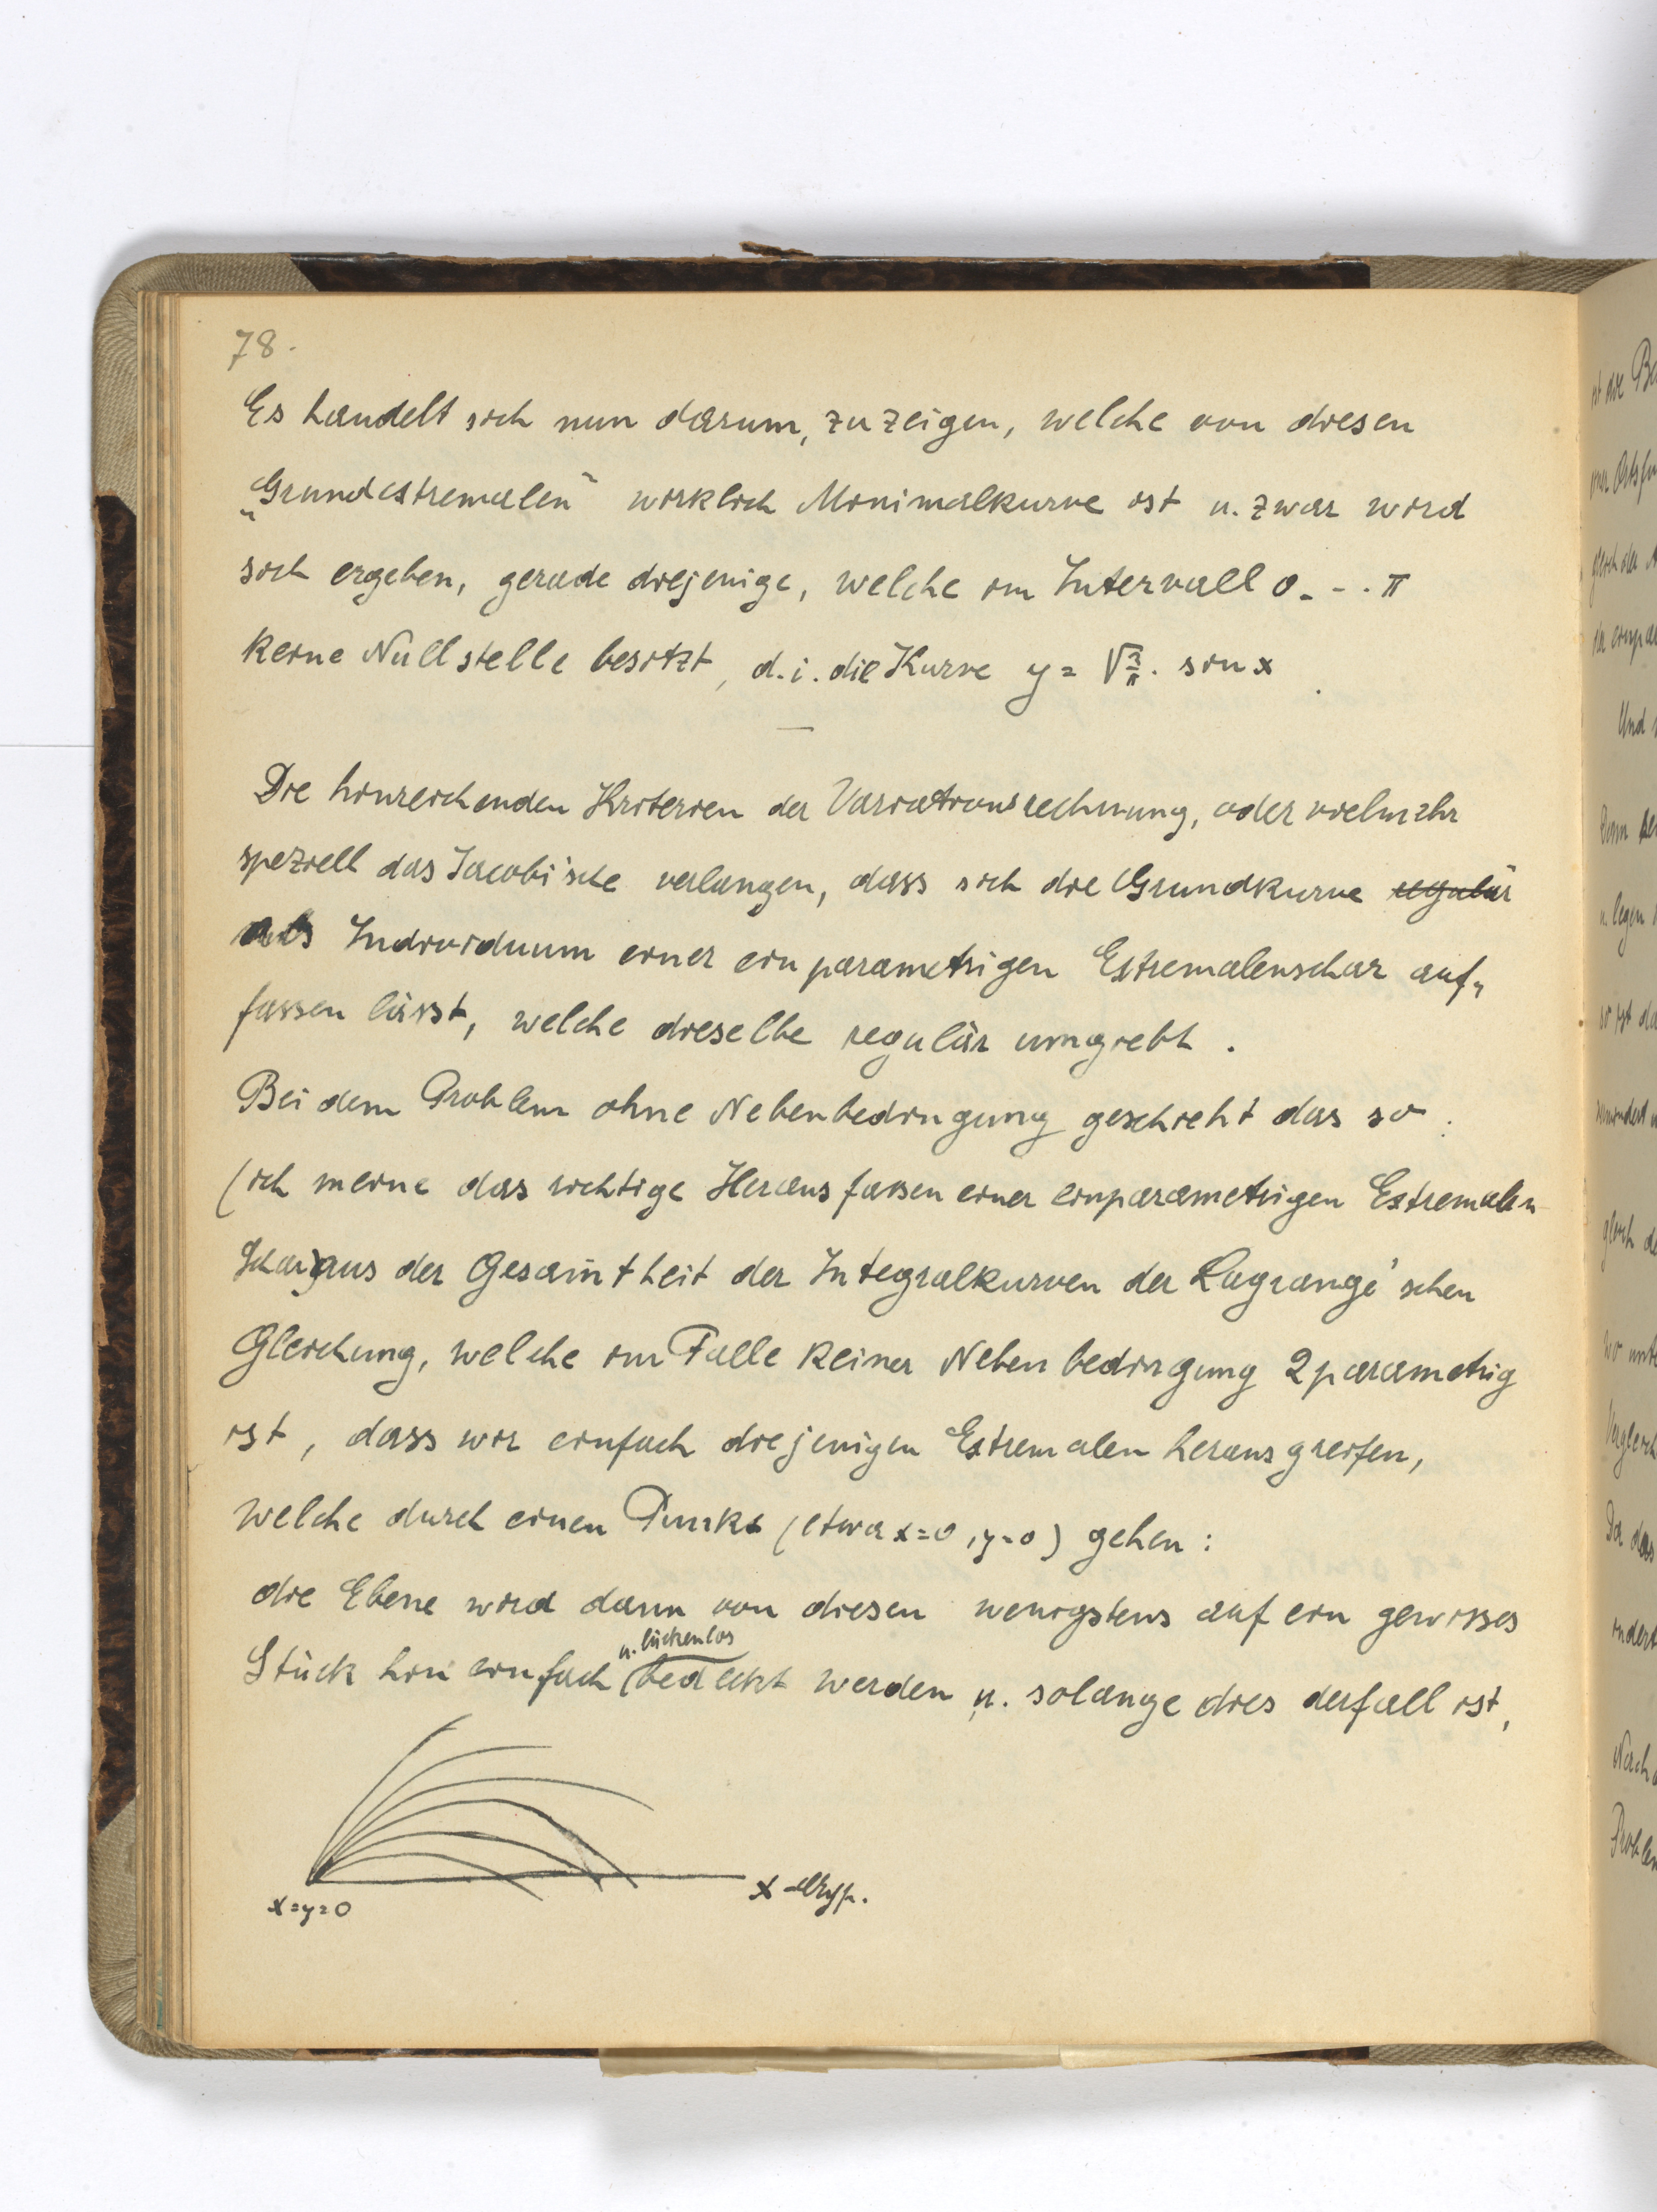 78.
Es handelt sich nun darum, zu zeigen, welche von diesen
„Grundextremalen“ wirklich Minimalkurve ist u. zwar wird
sich ergeben, gerade diejenige, welche im Intervall 0 - - . π
keine Nullstelle besitzt, d.i. die Kurve y = √2/π . sin x .
Die hinreichenden Kriterien der Variationsrechnung, oder vielmehr
speziell das Jacobi'sche verlangen, dass sich die Grundkurve regulär
als Individuum einer einparametrigen Extremalenschar auf„
fassen lässt, welche dieselbe regulär umgiebt .
Bei dem Problem ohne Nebenbedingung geschieht das so :
(ich meine das richtige Herausfassen einer einparametrigen Extremalen
schar) aus der Gesamtheit der Integralkurven der Lagrange'schen
Gleichung, welche im Falle keiner Nebenbedingung 2parametrig
ist, dass wir einfach diejenigen Extremalen herausgreifen,
welche durch einen Punkt (etwa x=0, y=0) gehen :
die Ebene wird dann von diesen wenigstens auf ein gewisses
u. lückenlos
Stück hin einfach bedeckt werden u. solange dies der fall ist,
x=y=0
x-